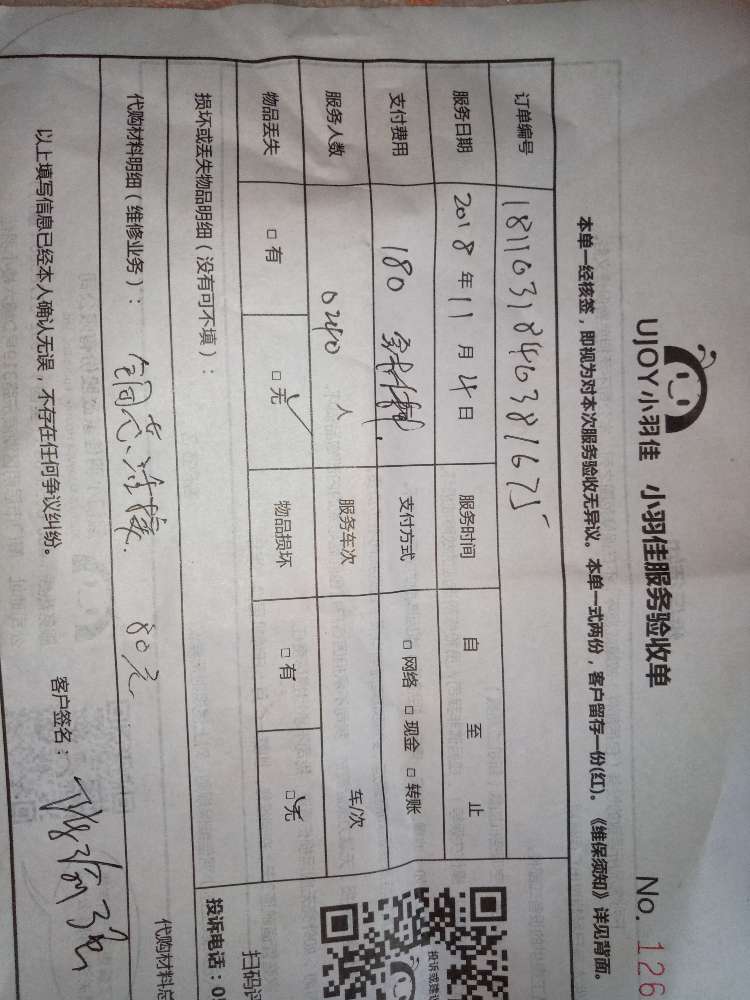 UJOY小羽佳 小羽佳服务验收单
No. 126
本单一经核签，即视为对本次服务验收无异议。本单一式两份，客户留存一份(红)。《维保须知》详见背面。
订单编号 1811031840381675
服务日期 2018年11月4日 服务时间 自 至 止
支付费用 180 支付方式 □ 网络 □ 现金 □ 转账
服务人数 人 服务车次 车/次
物品丢失 □ 有 □ 无 物品损坏 □ 有 □ 无
损坏或丢失物品明细（没有可不填）：
代购材料明细（维修业务）： 铜芯 80元
代购材料总
以上填写信息已经本人确认无误，不存在任何争议纠纷。
客户签名：
投诉或建议
扫码评
投诉电话：0